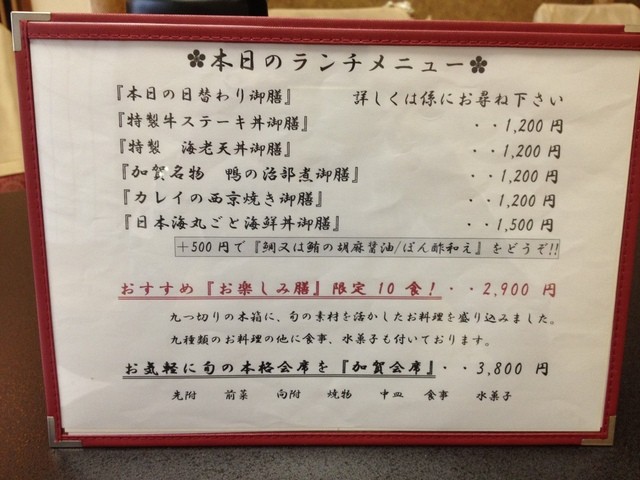 ✿本日のランチメニュー✿
『本日の日替わり御膳』 詳しくは係にお尋ね下さい
『特製牛ステーキ丼御膳』 ・・1,200 円
『特製 海老天丼御膳』 ・・1,200 円
『加賀名物 鴨の治部煮御膳』 ・・1,200 円
『カレイの西京焼き御膳』 ・・1,200 円
『日本海丸ごと海鮮丼御膳』 ・・1,500 円
＋500円で『鯛又は鮪の胡麻醤油/ぽん酢和え』をどうぞ!!
おすすめ『お楽しみ膳』限定 10 食！・・2,900 円
九つ切りの木箱に、旬の素材を活かしたお料理を盛り込みました。
九種類のお料理の他に食事、水菓子も付いております。
お気軽に旬の本格会席を『加賀会席』・・3,800 円
先附 前菜 向附 焼物 中皿 食事 水菓子